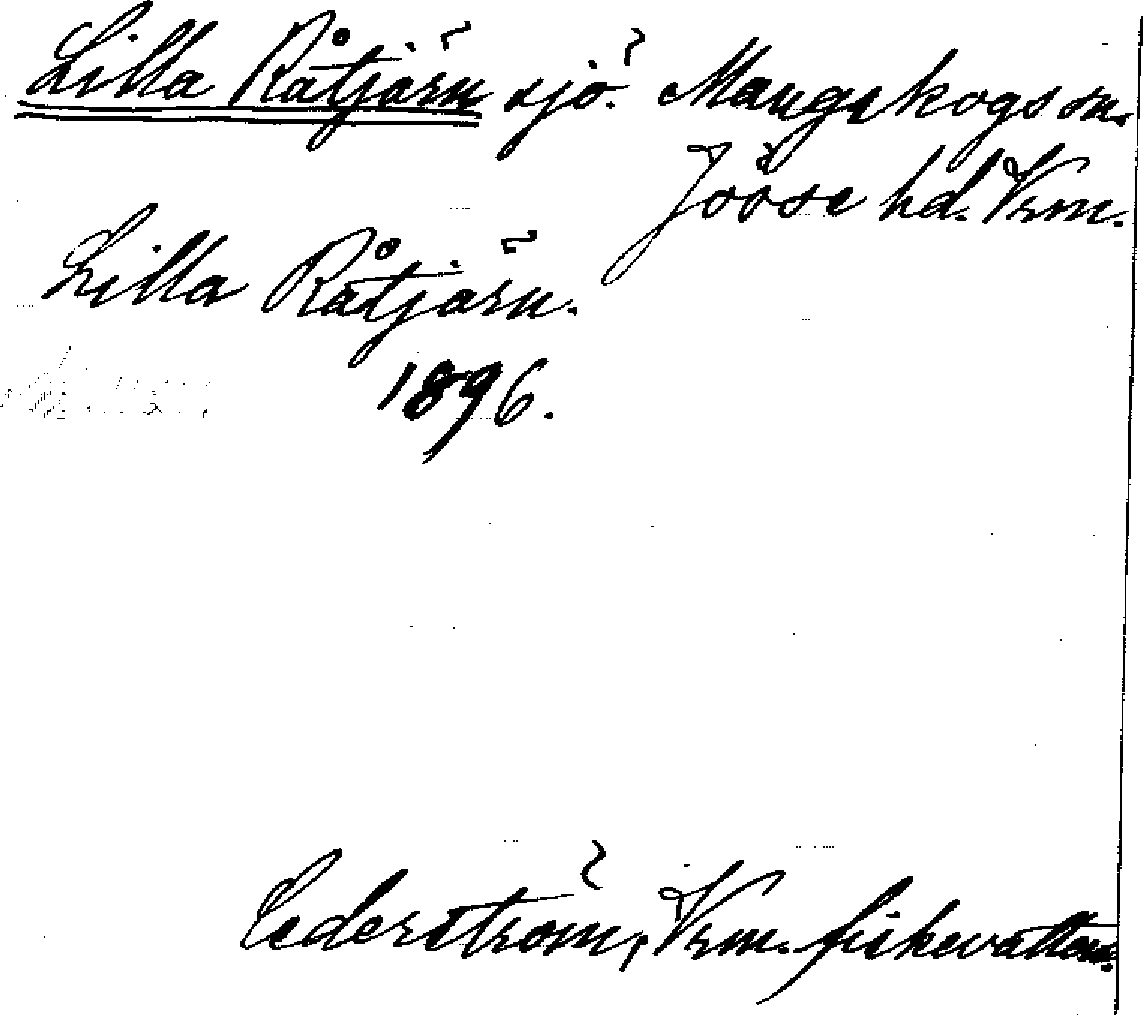 Lilla Råtjärn sjö. Mangskogs sn.
Jösse hd. Vrm.
Lilla Råtjärn.
1896.
Cederström, Vrm. fiskevatten.